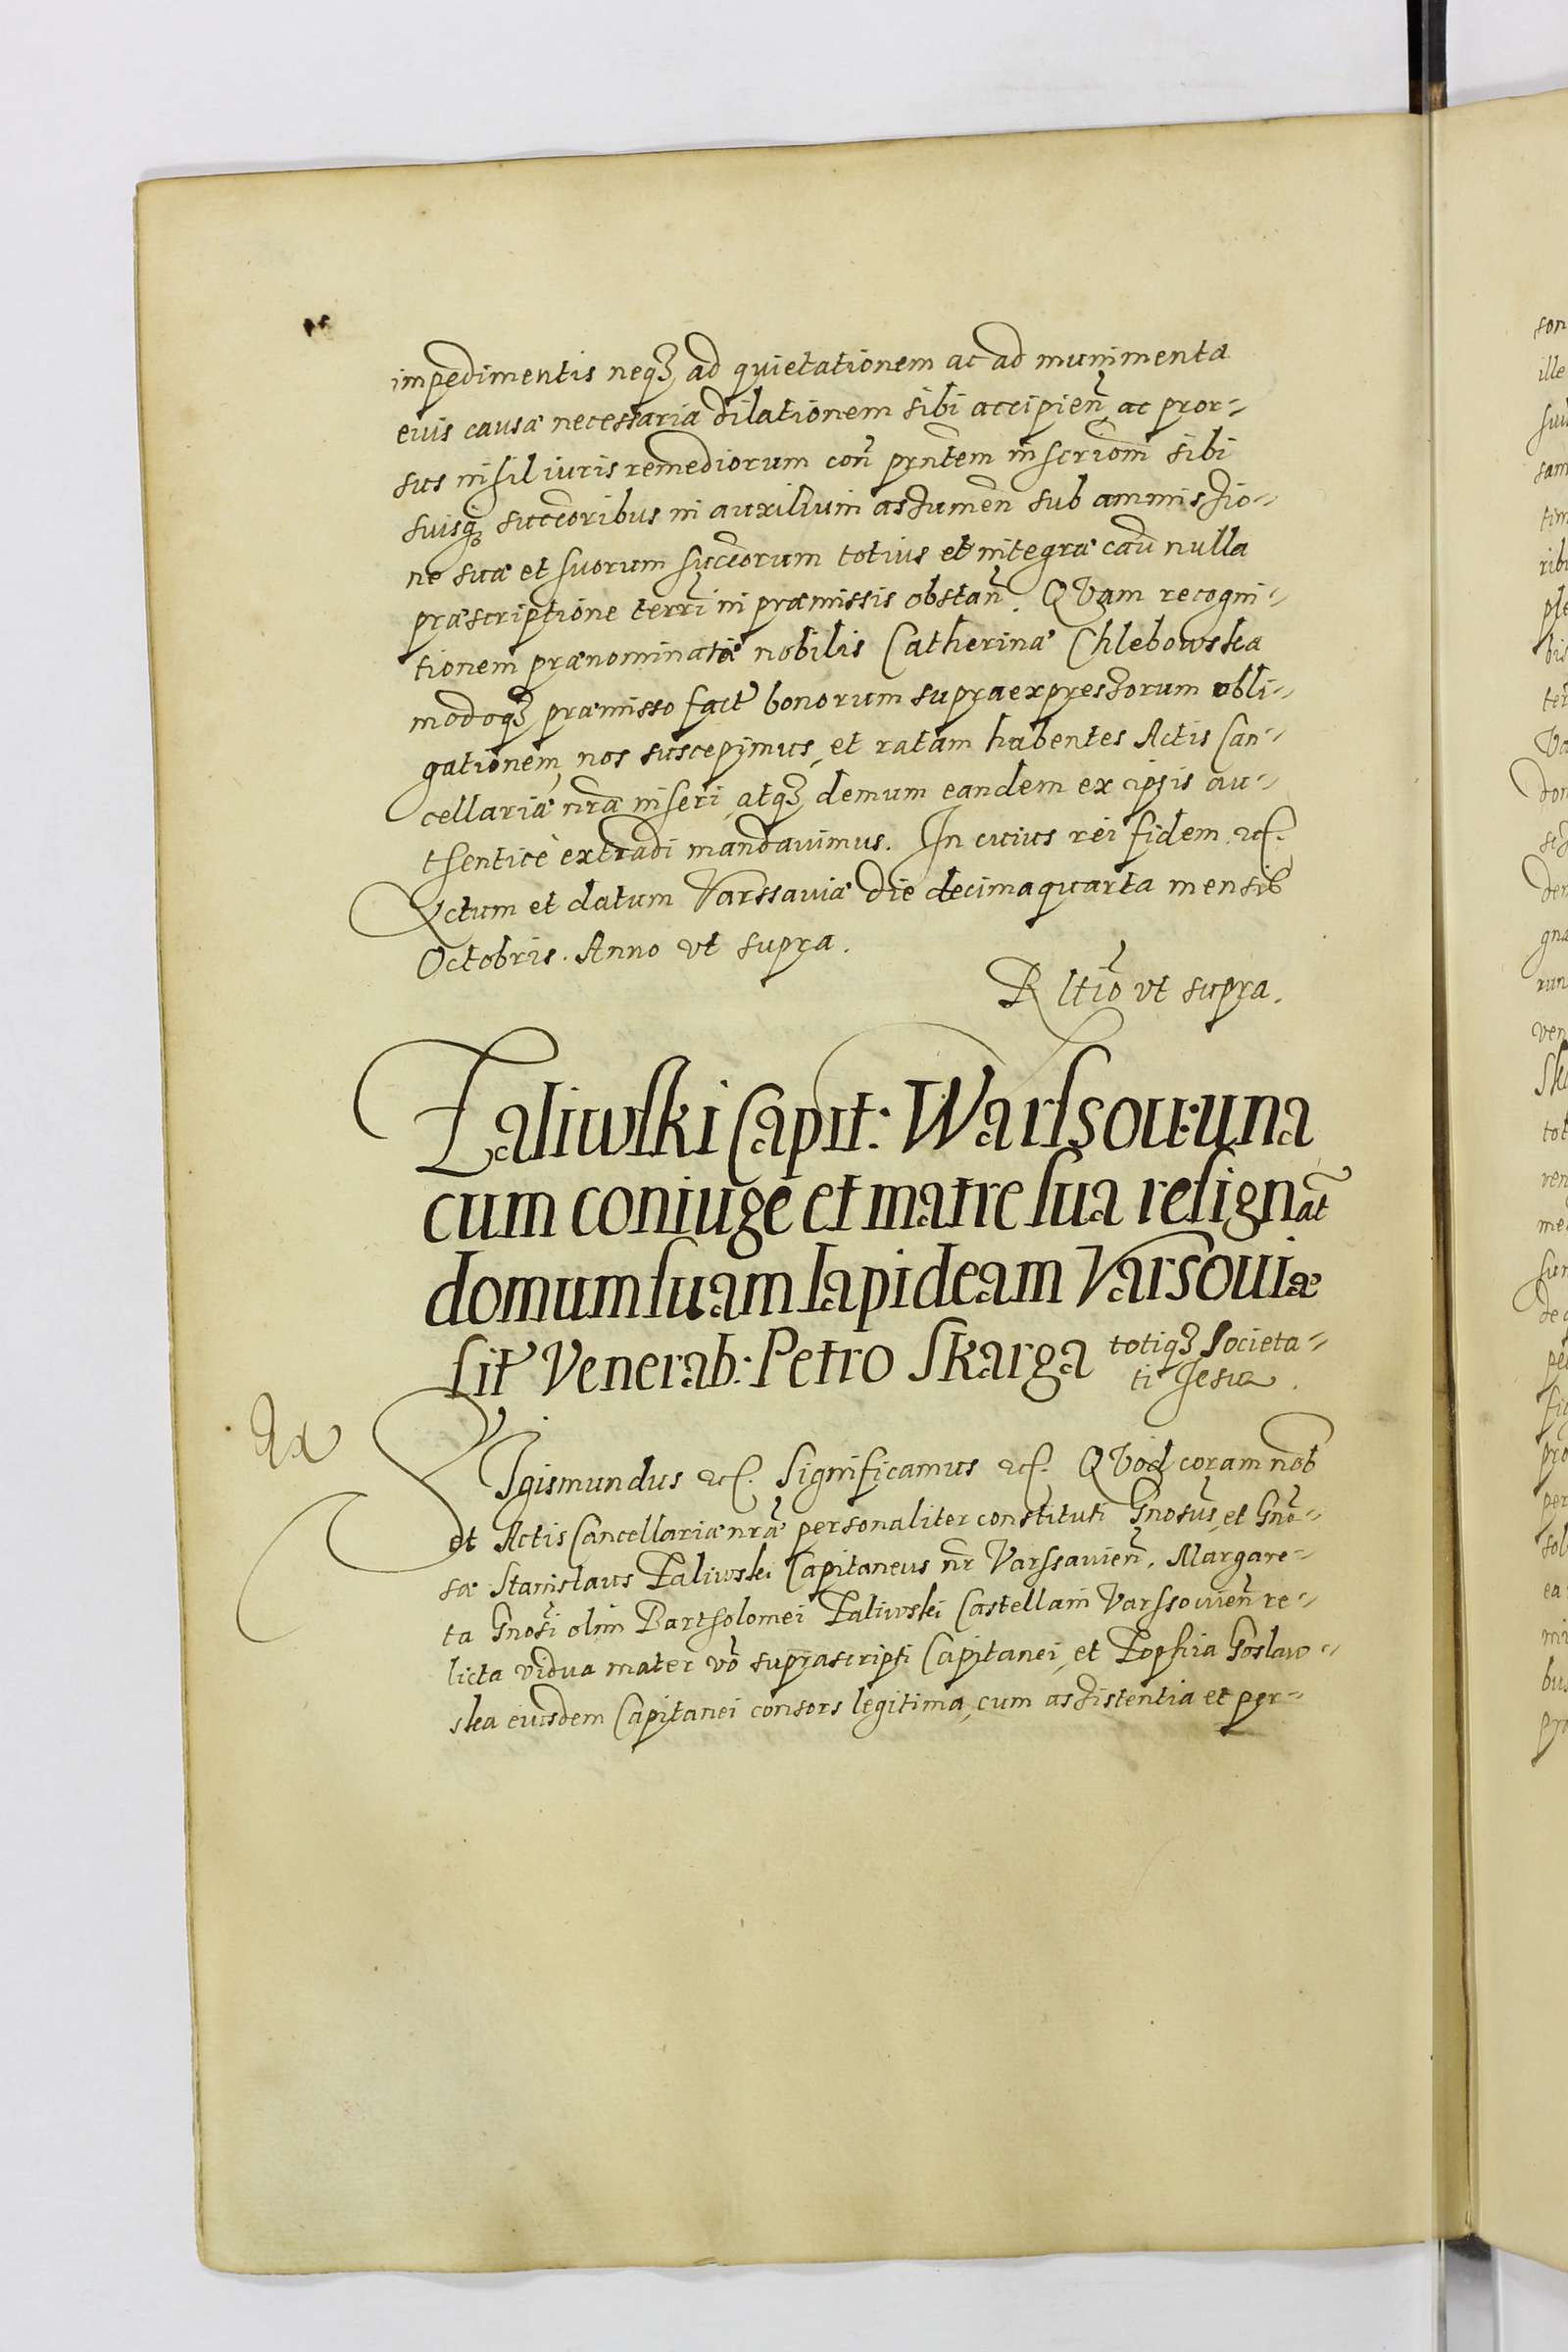 impedimentis neqȝ ad quietationem ac ad munimenta
eius causæ necessaria dilationem sibi accipieñ ac pror-
sus nihil iuris remediorum coñ prñtem inscriõm sibi
suisqȝ succõribus in auxilium assumeñ sub ammissio-
ne suæ et suorum succõrum totius et integræ cau͂ nulla
præscriptione terrĩ in præmissis obstañ. QVam recogni-
tionem prænominatæ nobilis Catherinæ Chlebowska
modoqȝ præmisso fact bonorum supraexpressorum obli-
gationem, nos suscepimus, et ratam habentes Actis Can-
cellariæ nrã inseri, atqȝ demum eandem ex ipsis au-
thenticè extradi mandauimus. In cuius rei fidem etc.
Actum et datum Varssauiæ die decimaquarta mensis
Octobris. Anno vt supra.
R ltio͂ vt supra.
Zaliwski Capit: Warssou: una
cum coniuge et matre sua resignat͂
domum suam lapideam Varsouiæ
sit Venerab: Petro Skarga totiqȝ Societa-
ti Jesu.
Ex
SIgismundus etc. Significamus etc. QVod coram nob
et Actis Cancellariæ nræ̃ personaliter constituti Gnosus͂, et Gno͂-
sæ Stanislaus Zaliwski Capitaneus nr͂ Varssauieñ, Margare-
ta Gnosi͂ olim Bartholomei Zaliwski Castellani Varssouieñ re-
licta vidua mater vo͂ suprascripti Capitanei, et Zophia Goslaw-
ska eiusdem Capitanei consors legitima, cum assistentia et per-